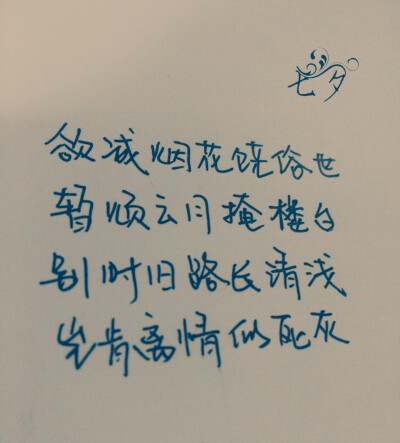 七夕
欲减烟花饶俗世
暂烦云月掩楼台
别时旧路长清浅
岂肯离情似死灰